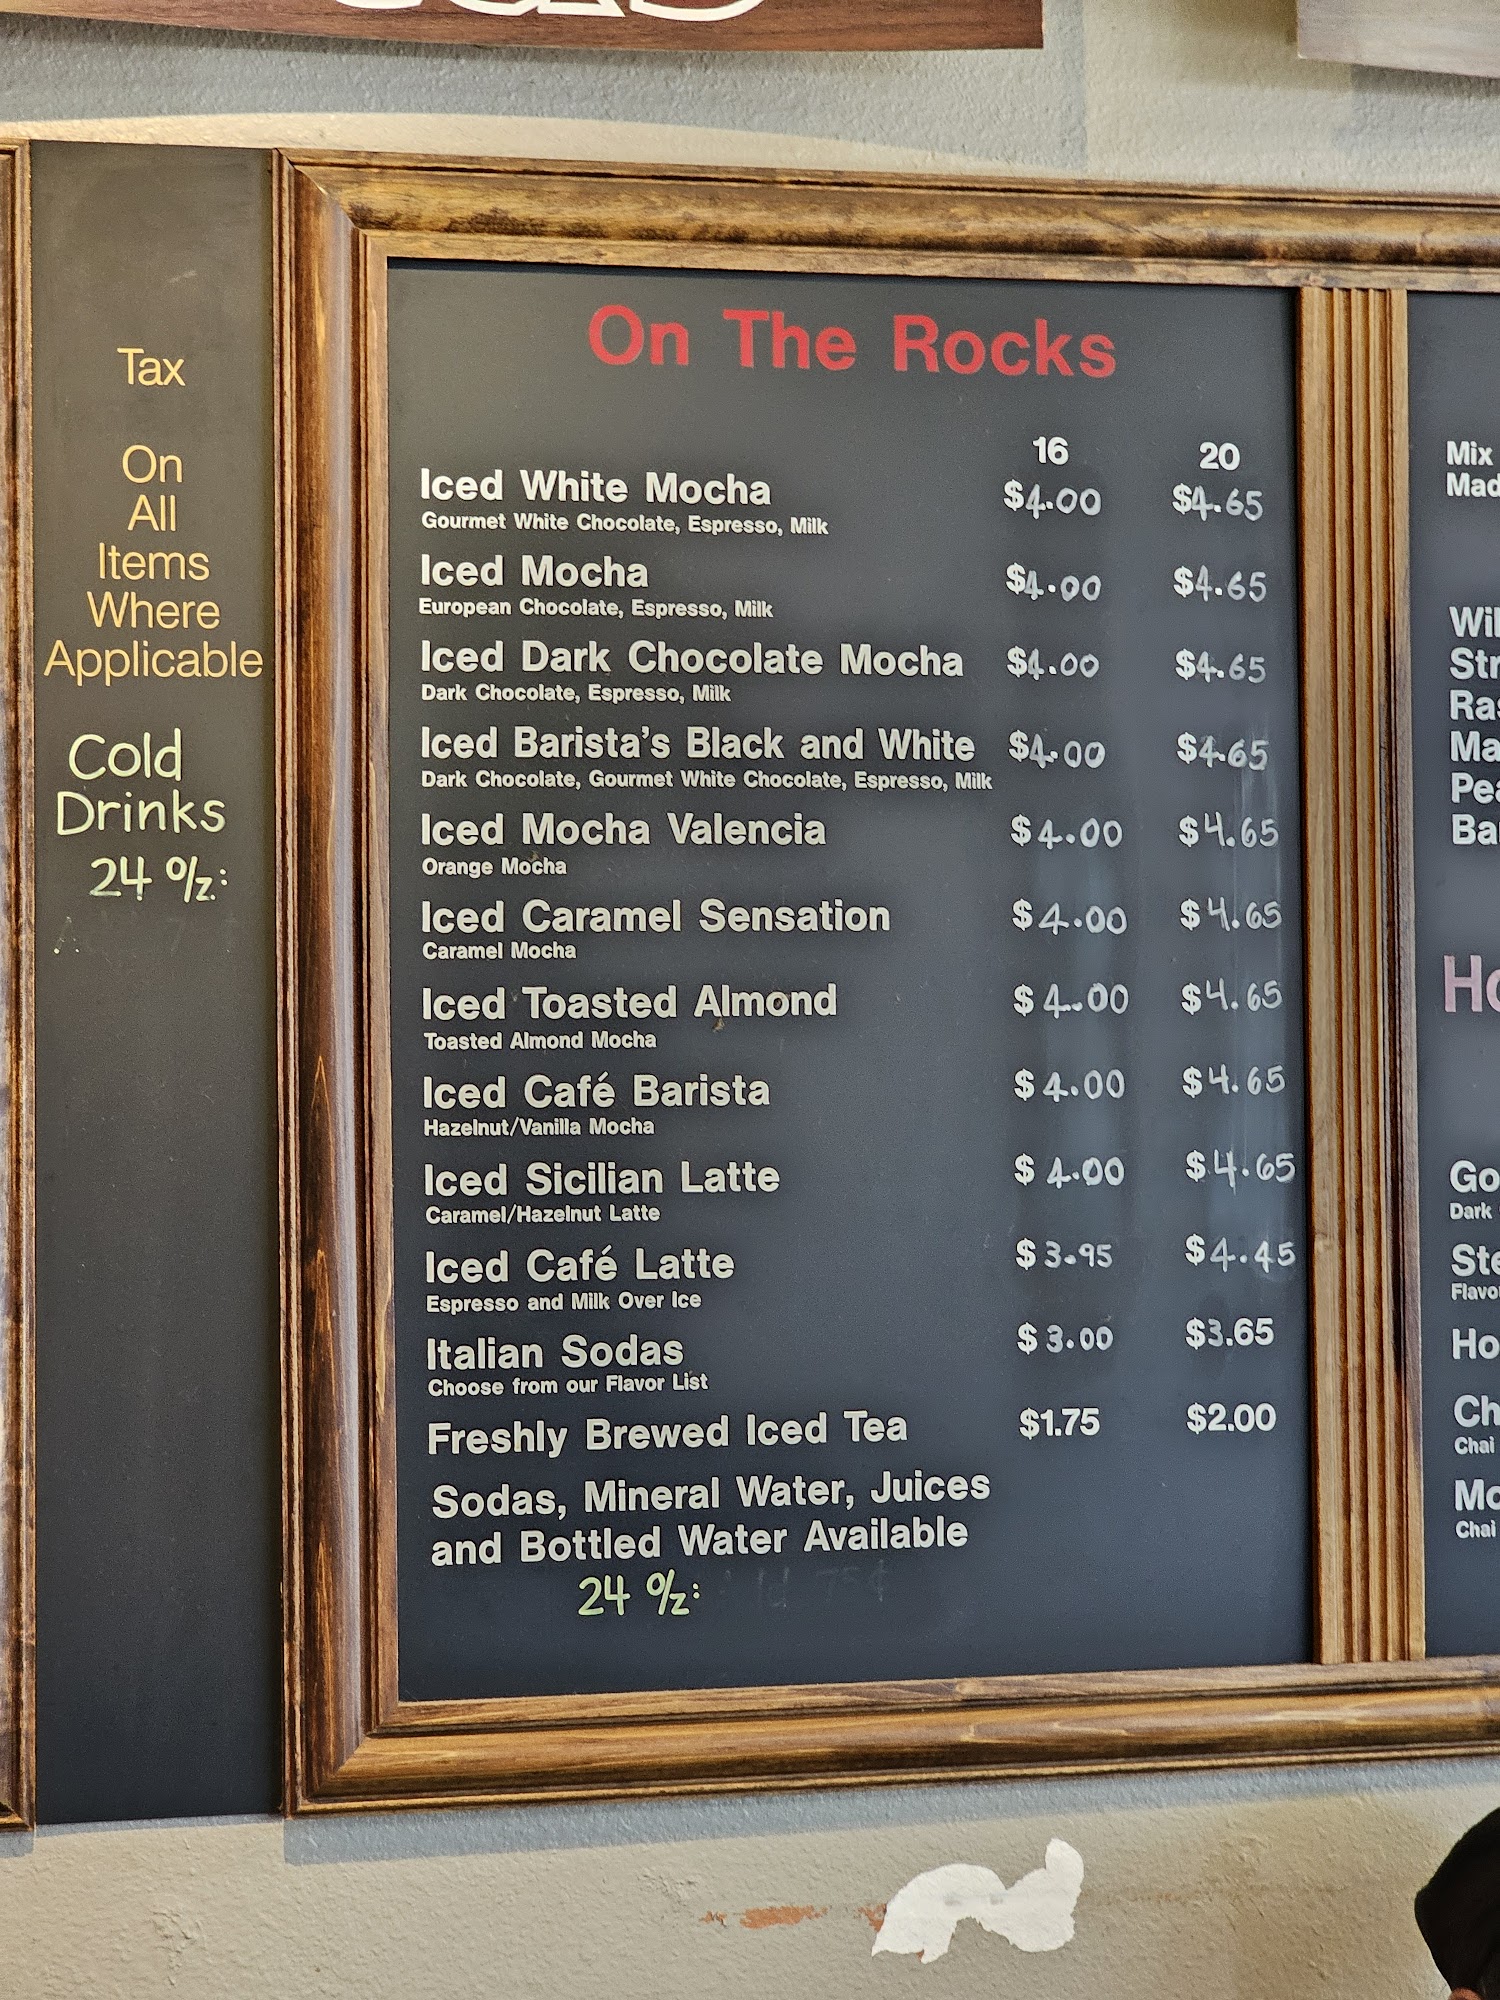 Tax
On
All
Items
Where
Applicable
Cold
Drinks
24 o/z:
On The Rocks
16 20
Iced White Mocha $4.00 $4.65
Gourmet White Chocolate, Espresso, Milk
Iced Mocha $4.00 $4.65
European Chocolate, Espresso, Milk
Iced Dark Chocolate Mocha $4.00 $4.65
Dark Chocolate, Espresso, Milk
Iced Barista's Black and White $4.00 $4.65
Dark Chocolate, Gourmet White Chocolate, Espresso, Milk
Iced Mocha Valencia $4.00 $4.65
Orange Mocha
Iced Caramel Sensation $4.00 $4.65
Caramel Mocha
Iced Toasted Almond $4.00 $4.65
Toasted Almond Mocha
Iced Café Barista $4.00 $4.65
Hazelnut/Vanilla Mocha
Iced Sicilian Latte $4.00 $4.65
Caramel/Hazelnut Latte
Iced Café Latte $3.95 $4.45
Espresso and Milk Over Ice
Italian Sodas $3.00 $3.65
Choose from our Flavor List
Freshly Brewed Iced Tea $1.75 $2.00
Sodas, Mineral Water, Juices
and Bottled Water Available
24 o/z:
Mix
Mad
Wil
Str
Ras
Ma
Pea
Ba
Ho
Go
Dark
Ste
Flavo
Ho
Ch
Chai
Mo
Chai